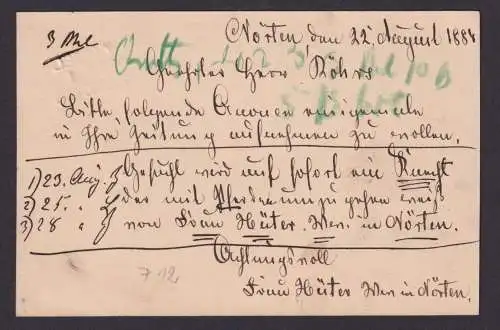 3 Mal
Nörten den 22. August 1888
Geehrter Herr Röhrs
Bitte folgende Anonce einigemale
in Ihre Zeitung aufnehmen zu wollen.
1) 23. Aug Gesucht wird auf sofort ein Knecht
2) 25. " der mit Pferden umzugehen weiß
3) 28 " von Frau Hüter. Wwe. in Nörten.
Achtungsvoll
Frau Hüter Wwe in Nörten.